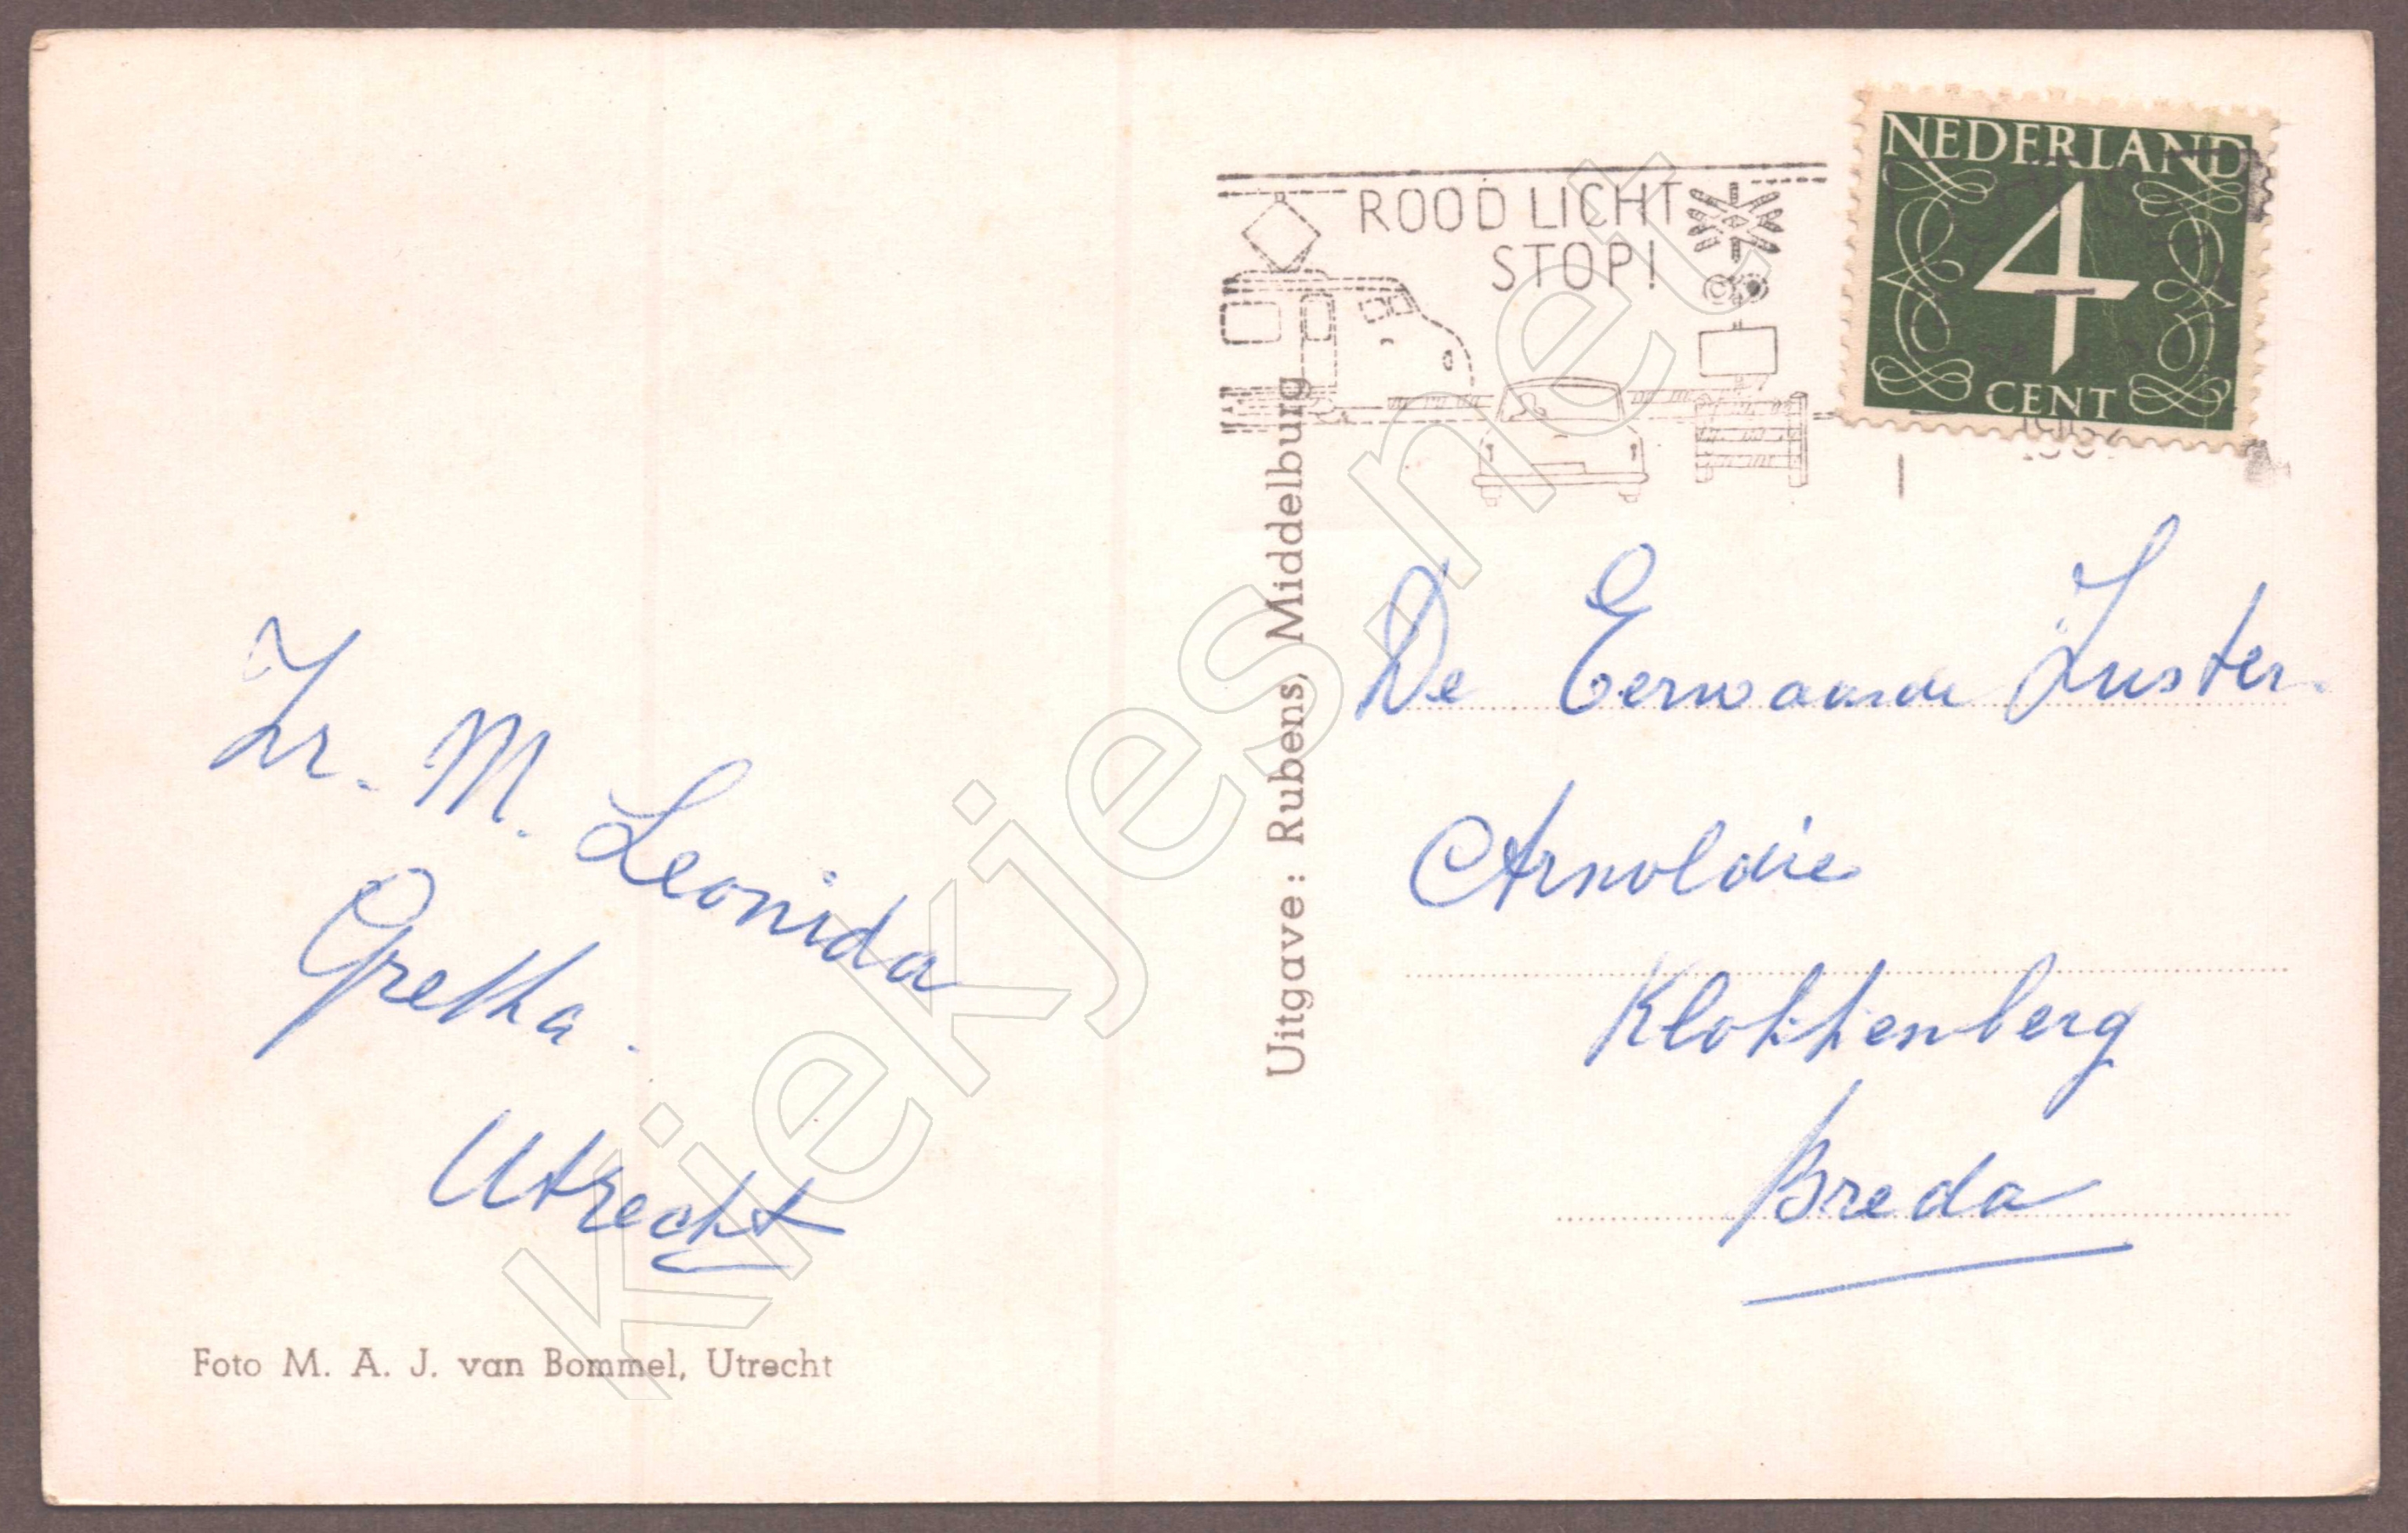 NEDERLAND
4
CENT
ROOD LICHT
STOP!
De Eerwaarde Zuster.
Arnoldie
Klokkenberg
Breda
Zr. M. Leonida
Gretha.
Utrecht
Foto M. A. J. van Bommel, Utrecht
Uitgave: Rubens, Middelburg
Kiekjes.net